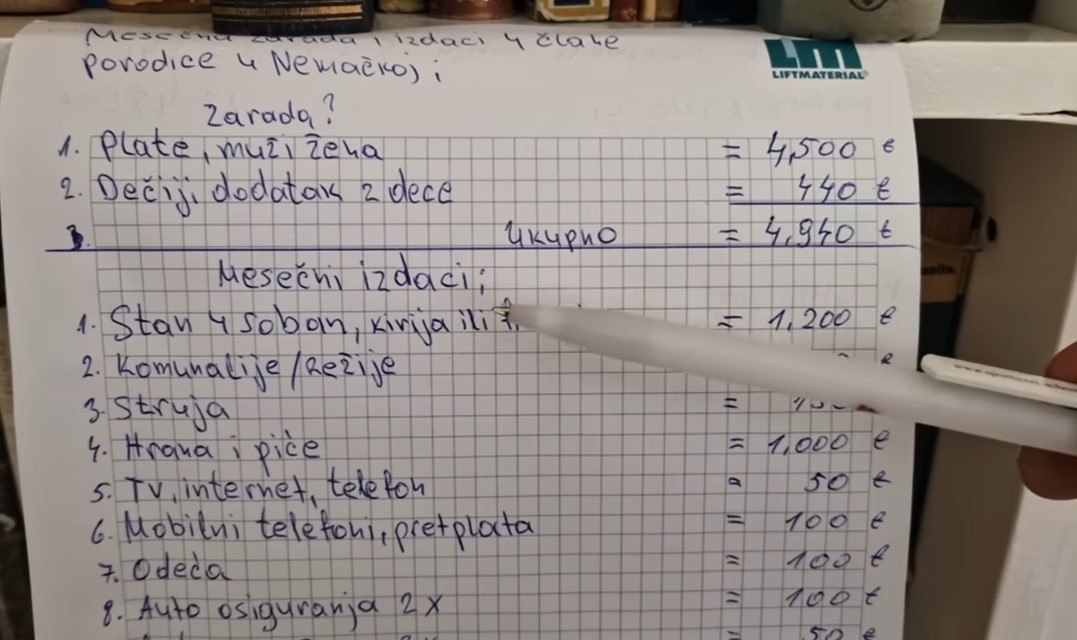 Mesečna zarada i izdaci 4 člane
porodice u Nemačkoj;
LM
LIFTMATERIAL
Zarada?
1. Plate, muž i žena = 4,500 €
2. Dečiji dodatak 2 dece = 440 €
3. Ukupno = 4,940 €
Mesečni izdaci;
1. Stan 4 soban, kirija ili = 1,200 €
2. Komunalije/Režije €
3. Struja =
4. Hrana i piće = 1,000 €
5. TV, internet, telefon = 50 €
6. Mobilni telefoni, pretplata = 100 €
7. Odeća = 100 €
8. Auto osiguranja 2x = 100 €
= 50 €